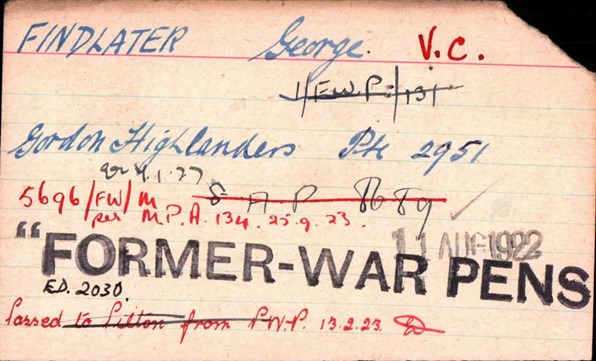 FINDLATER George V.C.
1/F.W.P./131
Gordon Highlanders Pte 2951
4.1.27
5696/FW/M S A P 8689
per M.P.A. 134. 25.9.23.
11 AUG 1922
"FORMER-WAR PENS
ED. 2030.
Passed to from P.W.P. 13.2.23.